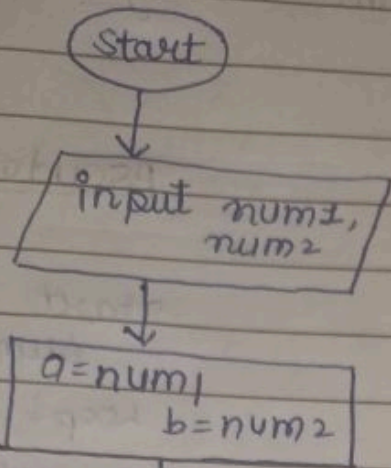 start
input num1,
num2
a=num1
b=num2